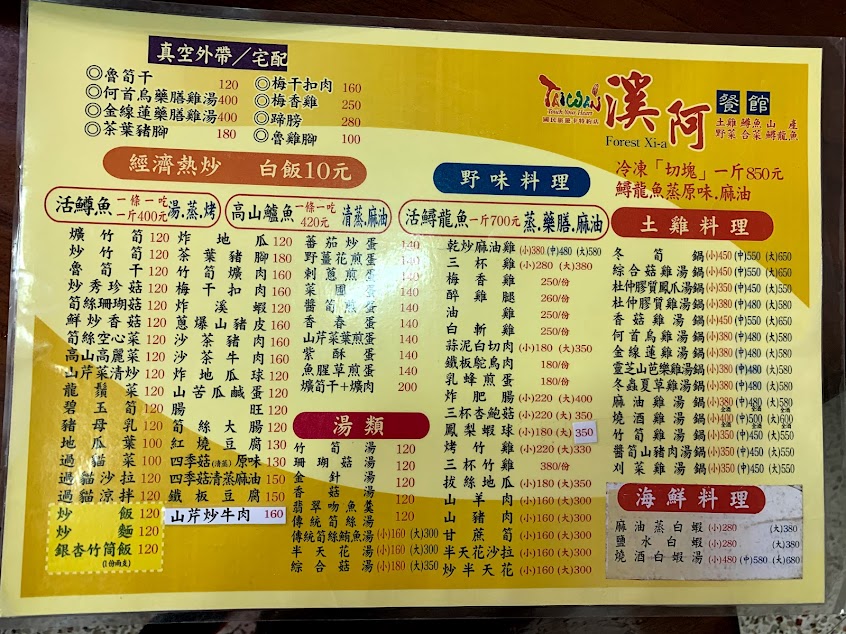 真空外帶／宅配
◎魯筍干 120
◎何首烏藥膳雞湯400
◎金線蓮藥膳雞湯400
◎茶葉豬腳 180
◎梅干扣肉 160
◎梅香雞 250
◎蹄膀 280
◎魯雞腳 100
TAIWAN
Touch Your Heart
國民旅遊卡特約店
溪阿
Forest Xi-a
餐館
土雞 鱒魚 山產
野菜 合菜 鱘龍魚
冷凍「切塊」一斤850元
鱘龍魚蒸原味.麻油
經濟熱炒 白飯10元
活鱒魚 一條一吃 一斤400元 湯.蒸.烤
高山鱸魚 一條一吃 420元 清蒸.麻油
壙竹筍 120
炒竹筍 120
魯筍干 120
炒秀珍菇 120
筍絲珊瑚菇 120
鮮炒香菇 120
筍絲空心菜 120
高山高麗菜 120
山芹菜清炒 120
龍鬚菜 120
碧玉筍 120
豬母乳 120
地瓜葉 100
過貓菜 100
過貓沙拉 120
過貓涼拌 120
炒飯 120
炒麵 120
銀杏竹筒飯 120
(1份兩支)
炸地瓜 120
茶葉豬腳 180
竹筍壙肉 160
梅干扣肉 160
炸溪蝦 120
蔥爆山豬皮 160
沙茶豬肉 160
沙茶牛肉 160
炸地瓜球 120
山苦瓜鹹蛋 120
腸旺 120
筍絲大腸 120
紅燒豆腐 130
四季菇(清蒸)原味 130
四季菇清蒸麻油 150
鐵板豆腐 150
山芹炒牛肉 160
蕃茄炒蛋 140
野薑花煎蛋 140
剌蔥煎蛋 140
菜圃蛋 140
醬筍煎蛋 140
香春蛋 140
山芹菜葉煎蛋 140
紫酥蛋 140
魚腥草煎蛋 140
壙筍干+壙肉 200
湯類
竹筍湯 120
珊瑚菇湯 120
金針湯 120
香菇湯 120
翡翠吻魚羹 120
傳統筍絲湯 120
傳統筍絲鮪魚湯 (小)160 (大)300
半天花湯 (小)160 (大)300
綜合菇湯 (小)180 (大)350
野味料理
活鱘龍魚 一斤700元 蒸.藥膳.麻油
乾炒麻油雞 (小)380 (中)480 (大)580
三杯雞 (小)280 (大)380
梅香雞 250/份
醉雞腿 260/份
油雞 250/份
白斬雞 250/份
蒜泥白切肉 (小)180 (大)350
鐵板鴕鳥肉 180/份
乳蜂煎蛋 180/份
炸肥腸 (小)220 (大)400
三杯杏鮑菇 (小)220 (大)350
鳳梨蝦球 (小)180 (大)350
烤竹雞 (小)220 (大)330
三杯竹雞 380/份
拔絲地瓜 (小)180 (大)350
山羊肉 (小)160 (大)300
山豬肉 (小)160 (大)300
甘蔗筍 (小)160 (大)300
半天花沙拉 (小)160 (大)300
炒半天花 (小)160 (大)300
土雞料理
冬筍鍋 (小)450 (中)550 (大)650
綜合菇雞湯鍋 (小)450 (中)550 (大)650
杜仲膠質鳳爪湯鍋 (小)350 (中)450 (大)550
杜仲膠質雞湯鍋 (小)380 (中)480 (大)580
香菇雞湯鍋 (小)350 (中)450 (大)550
何首烏雞湯鍋 (小)380 (中)480 (大)580
金線蓮雞湯鍋 (小)380 (中)480 (大)580
靈芝山芭樂雞湯鍋 (小)380 (中)480 (大)580
冬蟲夏草雞湯鍋 (小)380 (中)480 (大)580
麻油雞湯鍋 (小)380 (中)480 (大)580
燒酒雞湯鍋 (小)400 (中)500 (大)600
竹筍雞湯鍋 (小)350 (中)450 (大)550
醬筍山豬肉湯鍋 (小)350 (中)450 (大)550
刈菜雞湯鍋 (小)350 (中)450 (大)550
海鮮料理
麻油蒸白蝦 (小)280 (大)380
鹽水白蝦 (小)280 (大)380
燒酒白蝦湯 (小)480 (中)580 (大)680